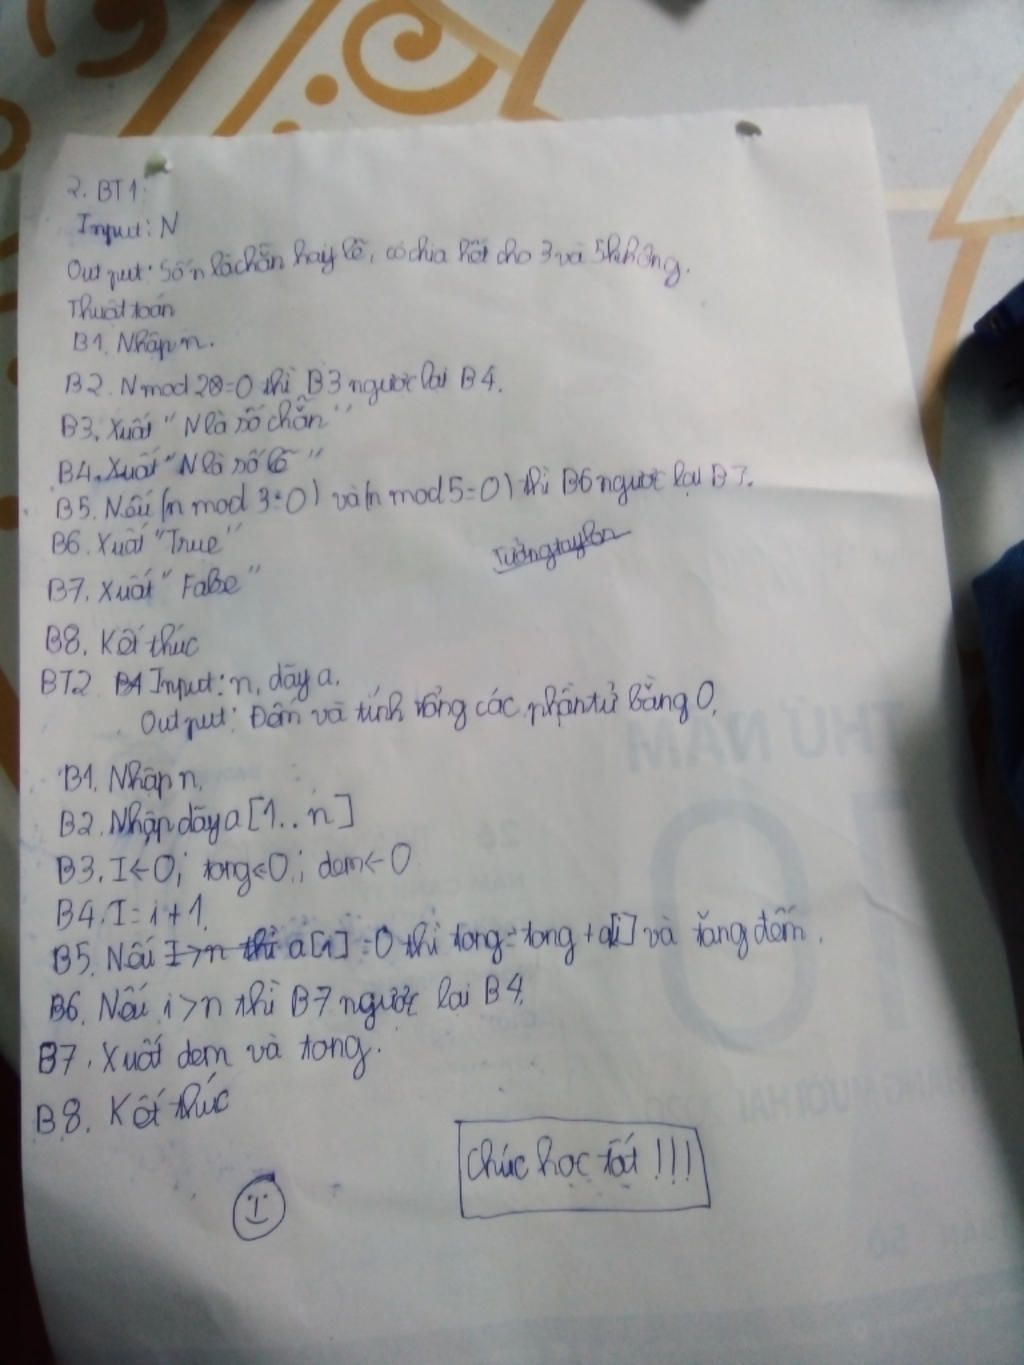 2. BT1:
Input: N
Output: Số n là chẵn hay lẻ, có chia hết cho 3 và 5 không.
Thuật toán
B1. Nhập n.
B2. N mod 2=0 thì B3 ngược lại B4.
B3. Xuất "N là số chẵn"
B4. Xuất "N là số lẻ"
B5. Nếu (n mod 3=0) và (n mod 5=0) thì B6 ngược lại B7.
B6. Xuất "True"
B7. Xuất "False"
B8. Kết thúc
BT2 Input: n, dãy a.
Output: Đếm và tính tổng các phần tử bằng 0.
B1. Nhập n.
B2. Nhập dãy a [1..n]
B3. I<-0; tong<-0; dem<-0
B4. I=i+1.
B5. Nếu I>n thì a[i] =0 thì tong=tong+a[i] và tăng đếm.
B6. Nếu i>n thì B7 ngược lại B4.
B7. Xuất dem và tong.
B8. Kết thúc
Chúc học tốt !!!
THỨ NĂM
10
26
THÁNG MƯỜI HAI 2020
TUẦN 50